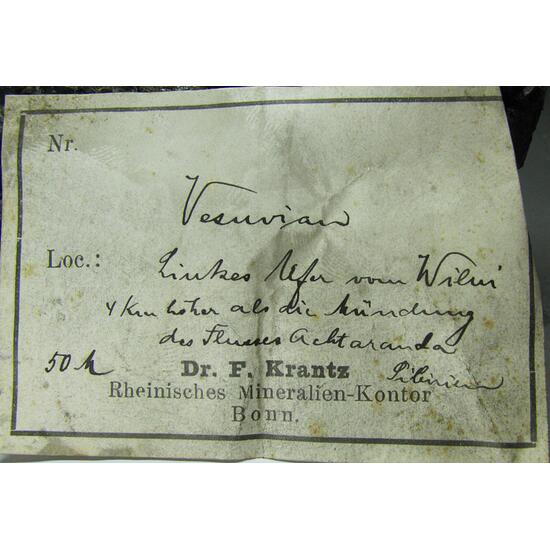 Nr.
Vesuvian
Loc.: Linkes Ufer vom Wilui
4 Km höher als die Mündung
des Flusses Achtaranda
50 M Dr. F. Krantz Sibirien
Rheinisches Mineralien-Kontor
Bonn.